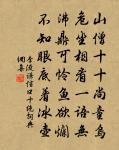 山僧十十尚童烏
危坐相看一語無
沸鼎可怜魚欲爛
不知眼底着冰壺
李流謙信口十絕詞典
網集